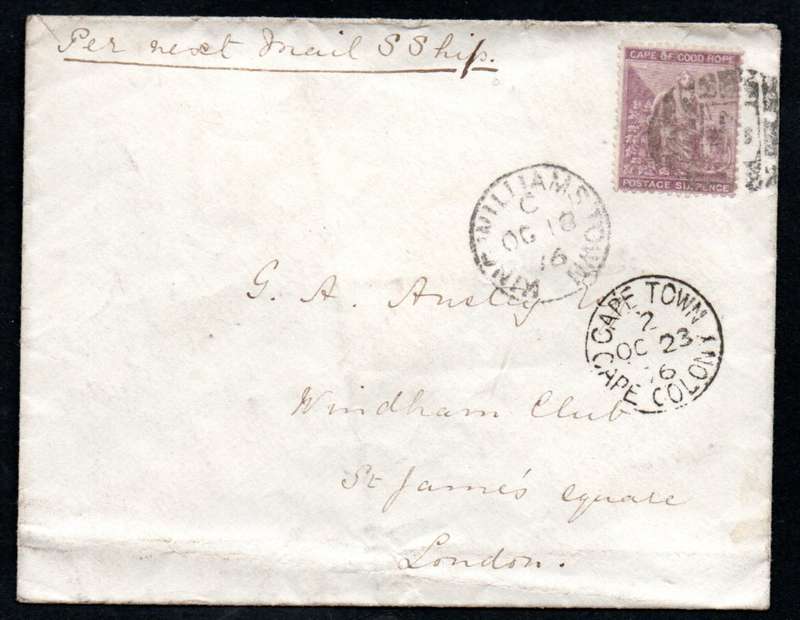 Per next Mail S Ship.
CAPE OF GOOD HOPE
POSTAGE SIXPENCE
KING WILLIAMS TOWN
C
OC 18
76
G. A.
CAPE TOWN CAPE COLONY
2
OC 23
76
Windham Club
St James's square
London.